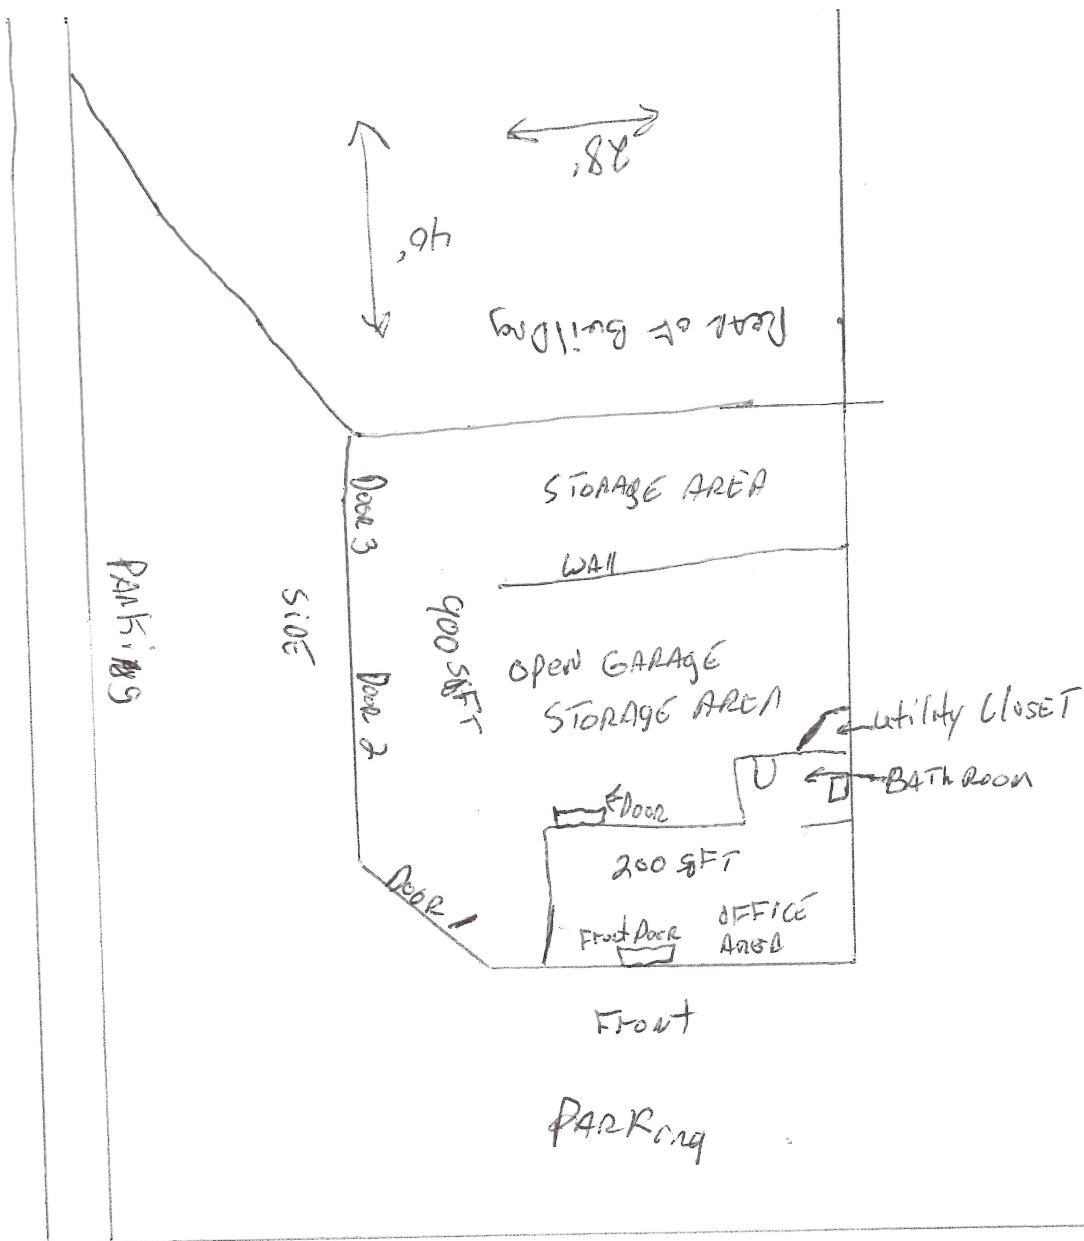 28'
40'
Rear of Building
STORAGE AREA
Door 3
WAll
Parking
SiDE
900 sqFT
OPEN GARAGE
STORAGE AREA
Door 2
Utility CloSET
BATHRoom
Door
200 sqFT
Door 1
OFFICE
AREA
Front Door
Front
PARKing